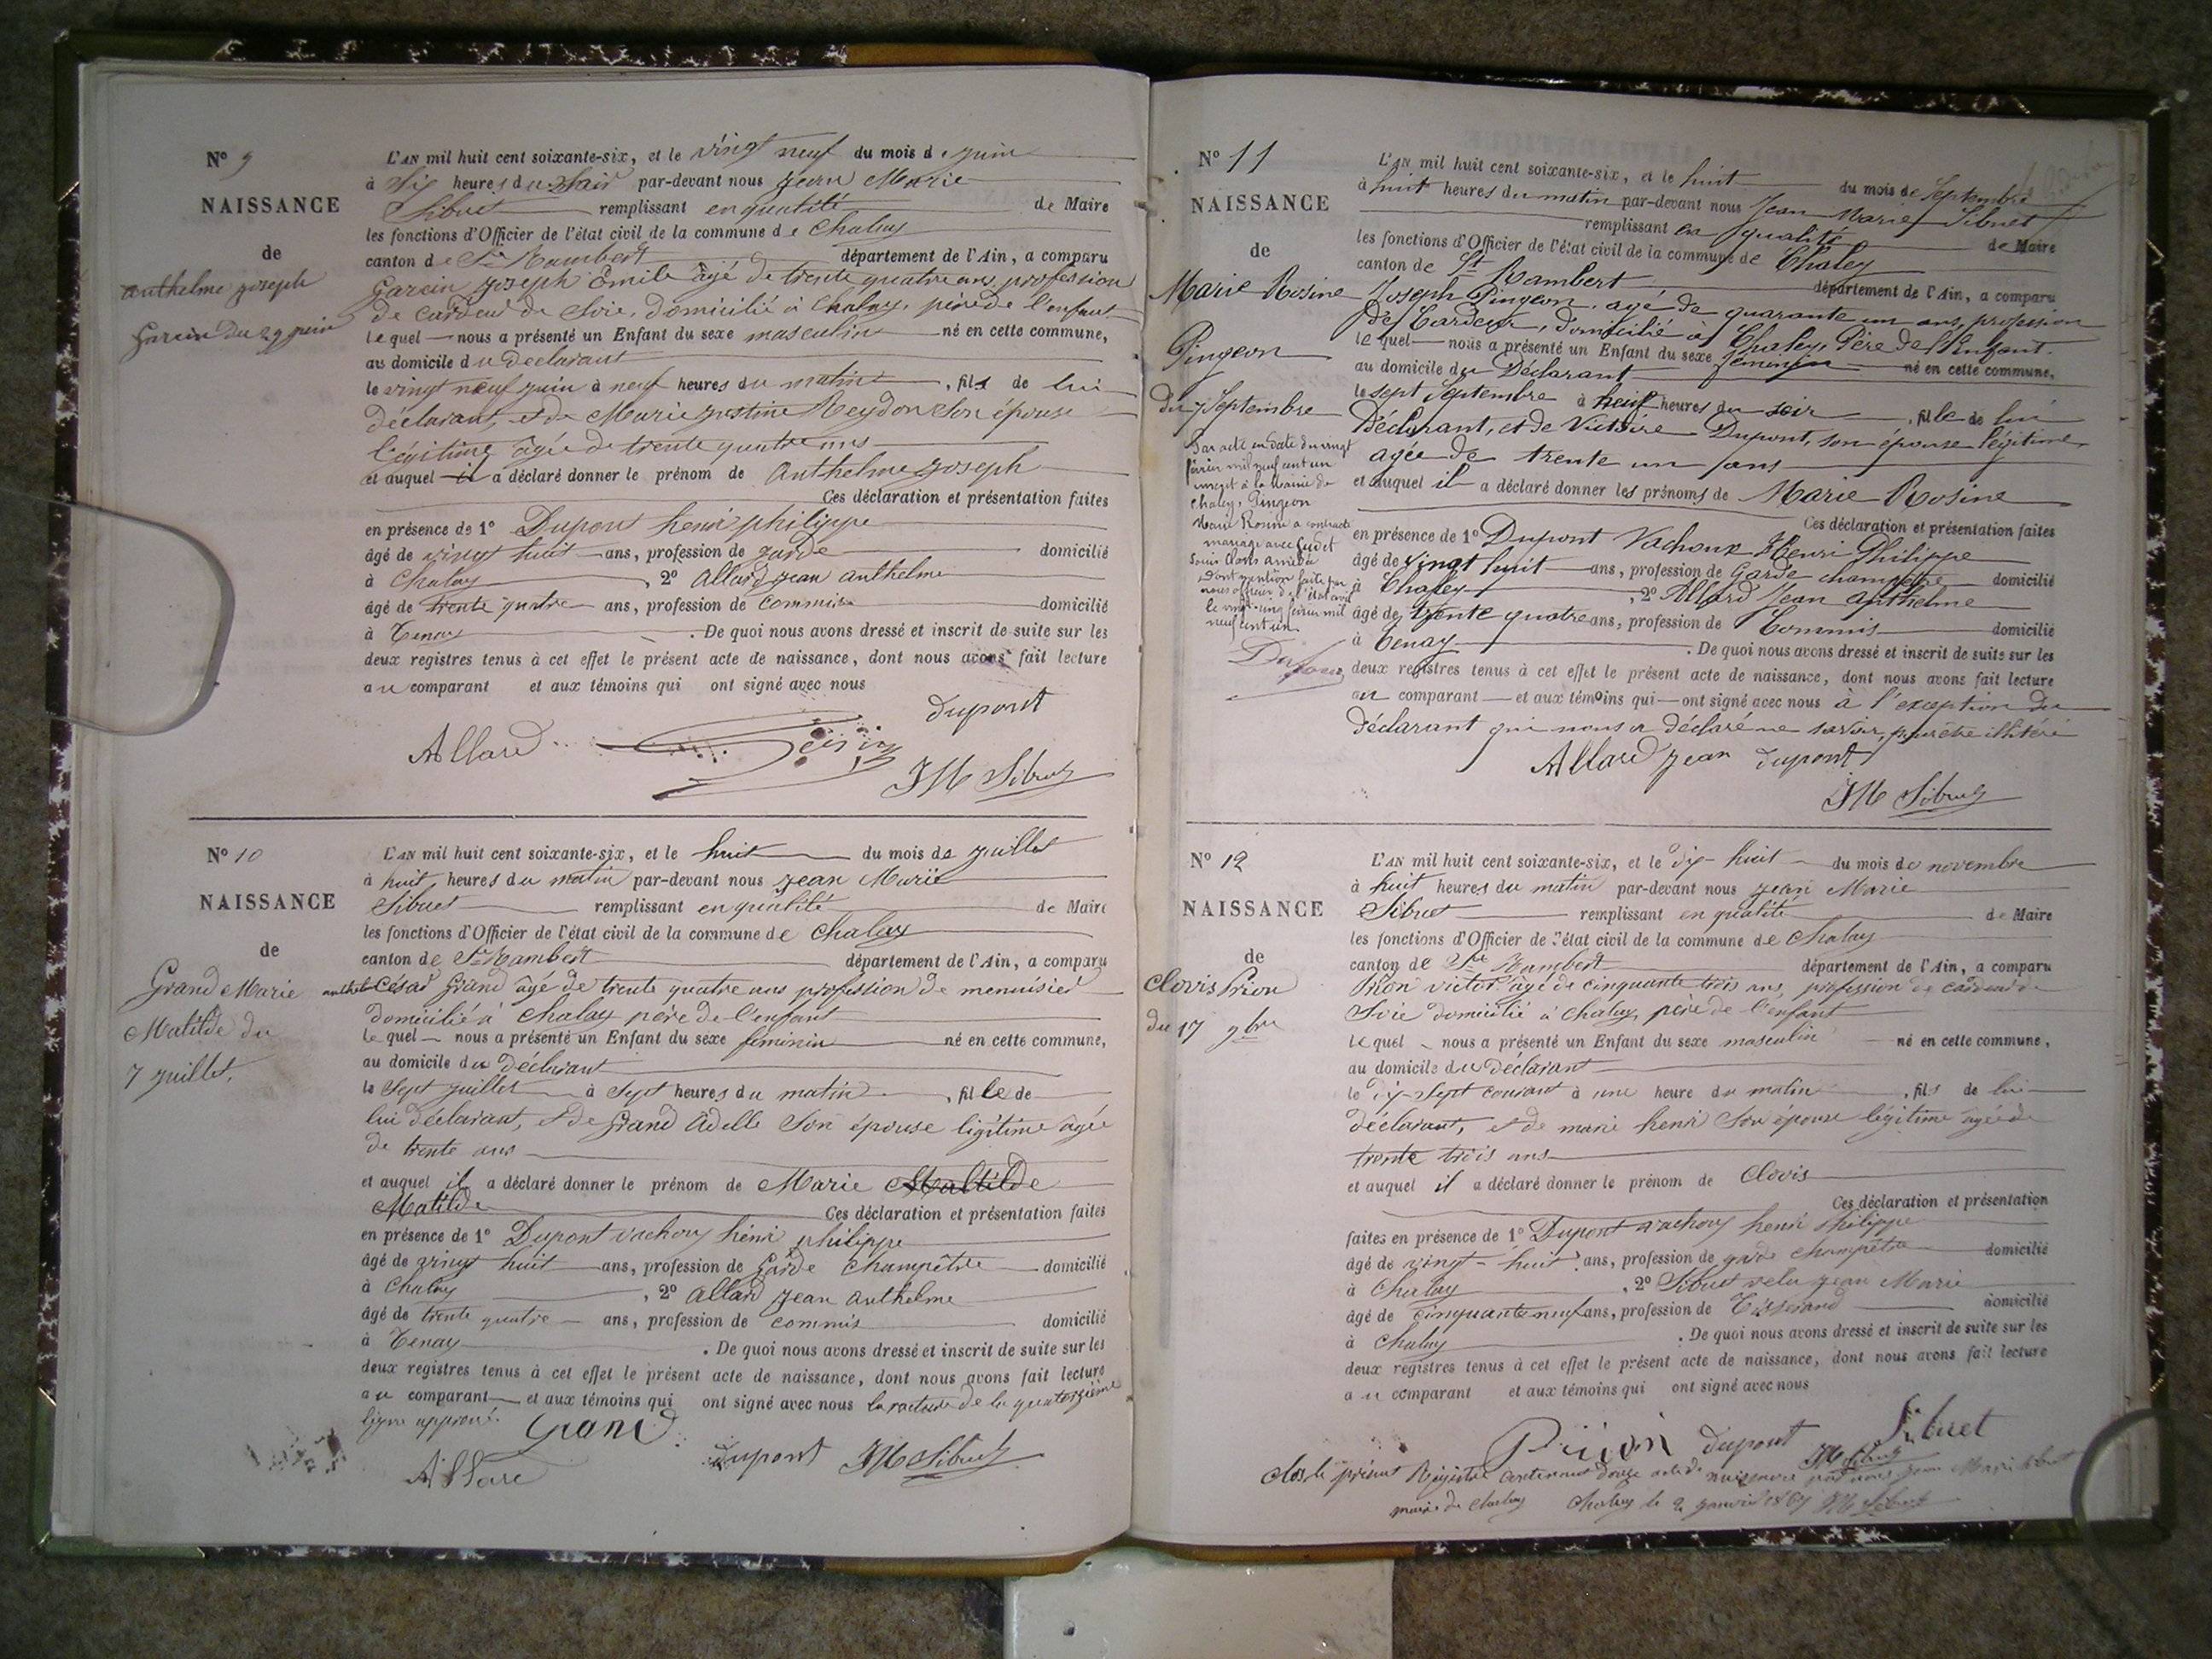 N° 9
NAISSANCE
de
Anthelme Joseph
Garcin du 29 juin
L'AN mil huit cent soixante-six, et le vingt neuf du mois de juin
à six heures du soir par-devant nous Jean Marie
Sibuet remplissant en qualité de Maire
les fonctions d'Officier de l'état civil de la commune de Chaley
canton de St Rambert département de l'Ain, a comparu
Garcin Joseph Emile âgé de trente quatre ans, profession
de cardeur de soie, domicilié à Chaley, père de l'enfant
lequel nous a présenté un Enfant du sexe masculin né en cette commune,
au domicile du déclarant
le vingt neuf juin à neuf heures du matin, fils de lui
déclarant, et de Marie Justine Reydon son épouse
légitime âgée de trente quatre ans
et auquel il a déclaré donner le prénom de Anthelme Joseph
Ces déclaration et présentation faites
en présence de 1° Dupont henri philippe
âgé de vingt huit ans, profession de garde domicilié
à Chaley, 2° Allard Jean Anthelme
âgé de trente quatre ans, profession de commis domicilié
à Tenay. De quoi nous avons dressé et inscrit de suite sur les
deux registres tenus à cet effet le présent acte de naissance, dont nous avons fait lecture
au comparant et aux témoins qui ont signé avec nous
dupont
Allard
JM Sibuet
N° 10
NAISSANCE
de
Grand Marie
Matilde du
7 juillet
L'AN mil huit cent soixante-six, et le huit du mois de juillet
à huit heures du matin par-devant nous Jean Marie
Sibuet remplissant en qualité de Maire
les fonctions d'Officier de l'état civil de la commune de Chaley
canton de St Rambert département de l'Ain, a comparu
César Grand âgé de trente quatre ans profession de menuisier
domicilié à Chaley père de l'enfant
lequel nous a présenté un Enfant du sexe féminin né en cette commune,
au domicile du déclarant
le sept juillet à sept heures du matin, fille de
lui déclarant, et de Grand Adelle son épouse légitime âgée
de trente ans
et auquel il a déclaré donner le prénom de Marie Maltilde
Matilde Ces déclaration et présentation faites
en présence de 1° Dupont vachoux hènri philippe
âgé de vingt huit ans, profession de Garde Champêtre domicilié
à Chaley, 2° Allard Jean Anthelme
âgé de trente quatre ans, profession de commis domicilié
à Tenay. De quoi nous avons dressé et inscrit de suite sur les
deux registres tenus à cet effet le présent acte de naissance, dont nous avons fait lecture
au comparant et aux témoins qui ont signé avec nous la rature de la quatorzième
ligne approuvé.
Grand
Allard
dupont JM Sibuet
N° 11
NAISSANCE
de
Marie Rosine
Pingeon
du 7 Septembre
Par acte en date du vingt
février mil neuf cent un
inscrit à la mairie de
Chaley, Pingeon
Marie Rosine a contracté
mariage avec
Dont mention faite par
nous officier de l'état civil
le vingt-cinq février mil
neuf cent un
L'AN mil huit cent soixante-six, et le huit du mois de Septembre
à huit heures du matin par-devant nous Jean Marie Sibuet
remplissant en qualité de Maire
les fonctions d'Officier de l'état civil de la commune de Chaley
canton de St Rambert département de l'Ain, a comparu
Joseph Pingeon, agé de quarante un ans, profession
de Cardeur, domicilié à Chaley, Père de l'Enfant.
lequel nous a présenté un Enfant du sexe féminin né en cette commune,
au domicile du Déclarant
le sept Septembre à neuf heures du soir, fille de lui
Déclarant, et de Victoire Dupont, son épouse légitime
agée de trente un ans
et auquel il a déclaré donner les prénoms de Marie Rosine
Ces déclaration et présentation faites
en présence de 1° Dupont Vachoux Henri Philippe
âgé de vingt huit ans, profession de Garde champêtre domicilié
à Chaley, 2° Allard Jean Anthelme
âgé de trente quatre ans, profession de Commis domicilié
à Tenay. De quoi nous avons dressé et inscrit de suite sur les
deux registres tenus à cet effet le présent acte de naissance, dont nous avons fait lecture
au comparant et aux témoins qui ont signé avec nous à l'exception du
déclarant qui nous a déclaré ne savoir, pour être illitéré
Allard Jean dupont
JM Sibuet
N° 12
NAISSANCE
de
Clovis Prion
du 17 9bre
L'AN mil huit cent soixante-six, et le dix-huit du mois de novembre
à huit heures du matin par-devant nous Jean Marie
Sibuet remplissant en qualité de Maire
les fonctions d'Officier de l'état civil de la commune de Chaley
canton de St Rambert département de l'Ain, a comparu
Prion victor, âgé de cinquante trois ans, profession de cardeur de
Soie domicilié à Chaley, père de l'enfant
lequel nous a présenté un Enfant du sexe masculin né en cette commune,
au domicile du déclarant
le dix-sept courant à une heure du matin, fils de lui
déclarant, et de marie henri son épouse légitime âgée de
trente trois ans
et auquel il a déclaré donner le prénom de Clovis
Ces déclaration et présentation
faites en présence de 1° Dupont vachoux henri philippe
âgé de vingt-huit ans, profession de garde champêtre domicilié
à Chaley, 2° Sibuet Jean Marie
âgé de cinquante neuf ans, profession de Tisserand domicilié
à Chaley. De quoi nous avons dressé et inscrit de suite sur les
deux registres tenus à cet effet le présent acte de naissance, dont nous avons fait lecture
au comparant et aux témoins qui ont signé avec nous
Priion dupont Sibuet
JM Sibuet
Clos le présent Régistre contenant douze actes de naissance par nous Jean Marie Sibuet
maire de Chaley Chaley le 2 janvier 1867 JM Sibuet